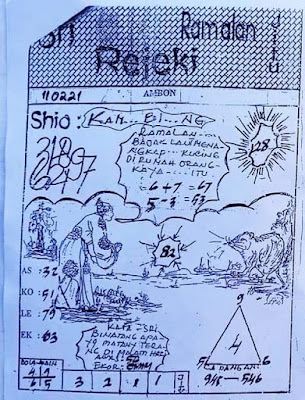 Sri
Ramalan
Jitu
Rejeki
110221
AMBON
Shio: KAM..BI...NG
RAMALAN---
BAJAK LAUT MENA-
NGKAP--KUCING
DI RUMAH ORANG-
KAYA.....ITU.
6+7=67
5-3=53
28
82
AS : 32
KO : 51
LE : 79
EK : 63
KATA-SRI
BINATANG APA-
YG MATANY TERA-
NG DI MALAM HARI
EKOR:
9
4
5
6
CADANGAN:
948-546
BOLA-MAIN
49
615
3 2 8 1